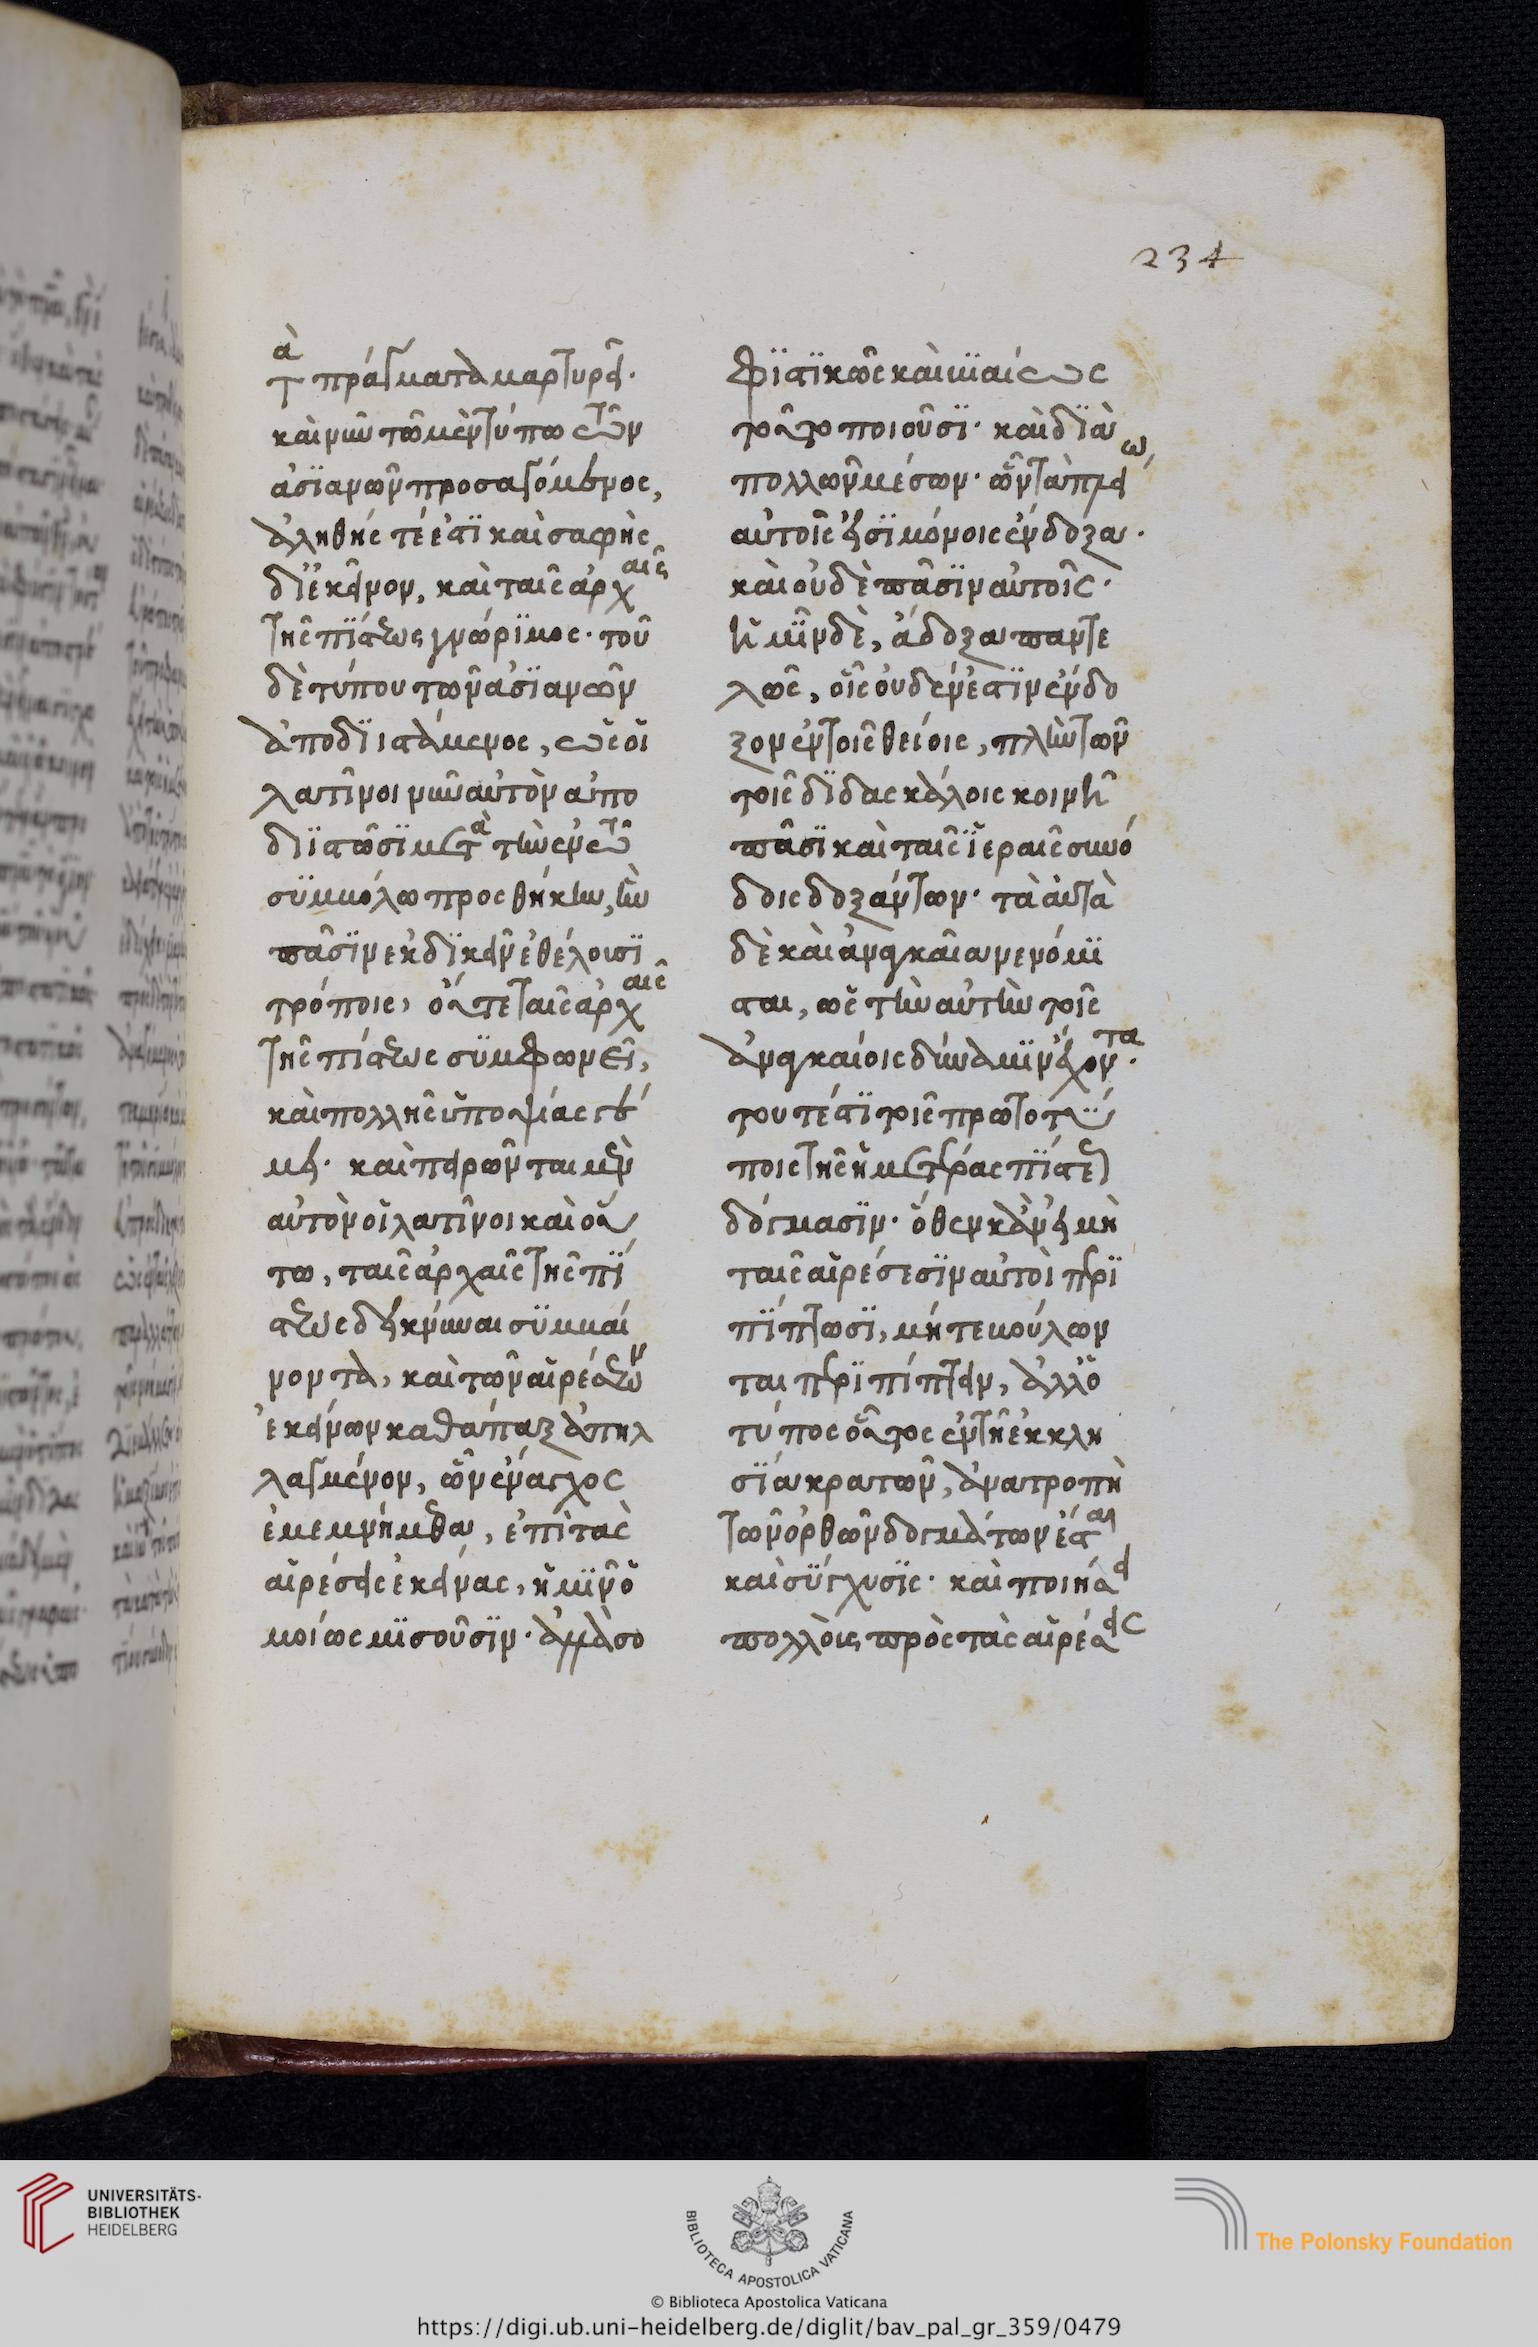 234
τὰ πράγματα μαρτυρεῖ.
καὶ νῦν τῷ μὲν τύπῳ τῶν
ἀσϊανῶν προσαγόμενος,
ἀληθής τέ ἐστϊ καὶ σαφὴς
δι' ἐκεῖνον, καὶ ταῖς ἀρχαῖς
τῆς πίστεως γνώρϊμος. τοῦ
δὲ τύπου τῶν ἀσϊανῶν
ἀποδιϊστάμενος, ὡς οἱ
λατῖνοι νῦν αὐτὸν ἀπο
διϊστῶσϊ μετὰ τὴν ἐν τῷ
συμβόλω προσθήκην, ἣν
πᾶσϊν ἐκδϊκεῖν ἐθέλουσϊ
τρόποις, οὔτε ταῖς ἀρχαῖς
τῆς πίστεως συμφωνεῖ,
καὶ πολλῆς ὑποψίας γέ
μει. καὶ πειρῶνται μὲν
αὐτὸν οἱ λατῖνοι καὶ οὕ
τω, ταῖς ἀρχαῖς τῆς πί
στεως δεικνύναι συμβαί
νοντα, καὶ τῶν αἱρέσεων
ἐκείνων καθάπαξ ἀπηλ
λαγμένον, ὧν ἔναγχος
ἐμεμνήμεθα, ἐπὶ τὰς
αἱρέσεις ἐκείνας, ἡμῖν ὁ
μοίως μισοῦσϊν. ἀλλὰ σο
φϊστϊκῶς καὶ βϊαίως
τοῦτο ποιοῦσϊ. καὶ δϊὰ
πολλῶν μέσων. ὧν τὰ πλείω,
αὐτοῖς εἰσϊ μόνοις ἔνδοξα.
καὶ οὐδὲ πᾶσϊν αὐτοῖς.
ἡμῖν δὲ, ἄδοξα παντε
λῶς, οἷς οὐδέν ἐστϊν ἔνδο
ξον ἐν τοῖς θείοις, πλὴν τῶν
τοῖς δϊδασκάλοις κοινῇ
πᾶσϊ καὶ ταῖς ἱεραῖς συνό
δοις δοξάντων. τὰ αὐτὰ
δὲ καὶ ἀναγκαῖα νενόμϊ
σται, ὡς τὴν αὐτὴν τοῖς
ἀναγκαίοις δύναμϊν ἔχοντα.
τουτέστϊ τοῖς πρωτοτύ
ποις τῆς ἡμετέρας πίστεως
δόγμασϊν. ὅθεν κἂν εἰ μὴ
ταῖς αἱρέσεσϊν αὐτοὶ περϊ
πίπτωσϊ, μήτε βούλων
ται περϊπίπτειν, ἀλλ' ὁ
τύπος οὗτος ἐν τῇ ἐκκλη
σίᾳ κρατῶν, ἀνατροπὴ
τῶν ὀρθῶν δογμάτων ἔσται
καὶ σύγχυσϊς. καὶ ποιήσει
πολλοῖς πρὸς τὰς αἱρέσεις
UNIVERSITÄTS-
BIBLIOTHEK
HEIDELBERG
BIBLIOTECA APOSTOLICA VATICANA
© Biblioteca Apostolica Vaticana
The Polonsky Foundation
https://digi.ub.uni-heidelberg.de/diglit/bav_pal_gr_359/0479